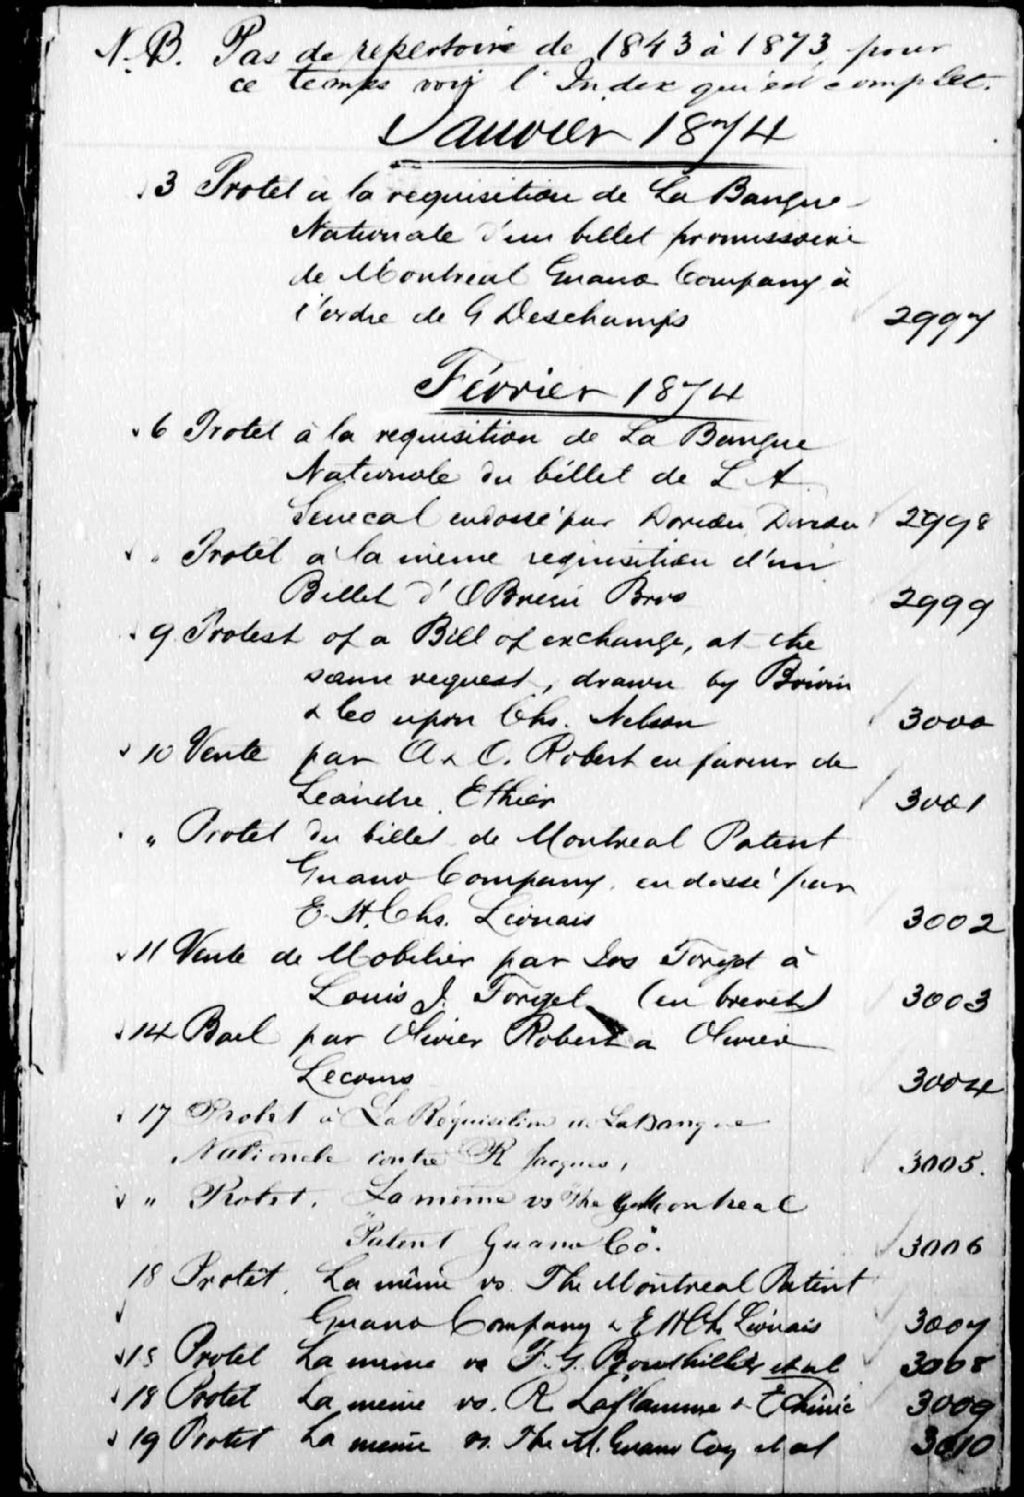 N.B. Pas de repertoire de 1843 à 1873 pour
ce temps voir l'Index qui est complet.
Janvier 1874
3 Protet à la requisition de La Banque
Nationale d'un billet promissoire
de Montreal Guano Company à
l'ordre de G Deschamps 2997
Février 1874
6 Protet à la requisition de La Banque
Nationale du billet de L A
Senecal endossé par Dorion Dorion 2998
" Protêt à la même requisition d'un
Billet d'OBrien Bros 2999
9 Protest of a Bill of exchange, at the
same request, drawn by Boivin
& Co upon Chs. Nelson 3000
10 Vente par A & O. Robert en faveur de
Leandre Ethier 3001
" Protet du billet de Montreal Patent
Guano Company endossé par
E. H. Chs. Lionais 3002
11 Vente de Mobilier par Jos Forget à
Louis J. Forget (en brevet) 3003
14 Bail par Olivier Robert a Olivier
Lecours 3004
17 Protet à La Réquisition de La Banque
Nationale contre R Jacques, 3005.
" Protet. La même vs The Montreal
Patent Guano Co. 3006
18 Protêt. La même vs. The Montreal Patent
Guano Company & E H Ch Lionais 3007
18 Protet La meme vs F. G. et al 3008
18 Protet La meme vs. R Laflamme & E Chinic 3009
19 Protet La meme vs. The M. Guano Coy et al 3010